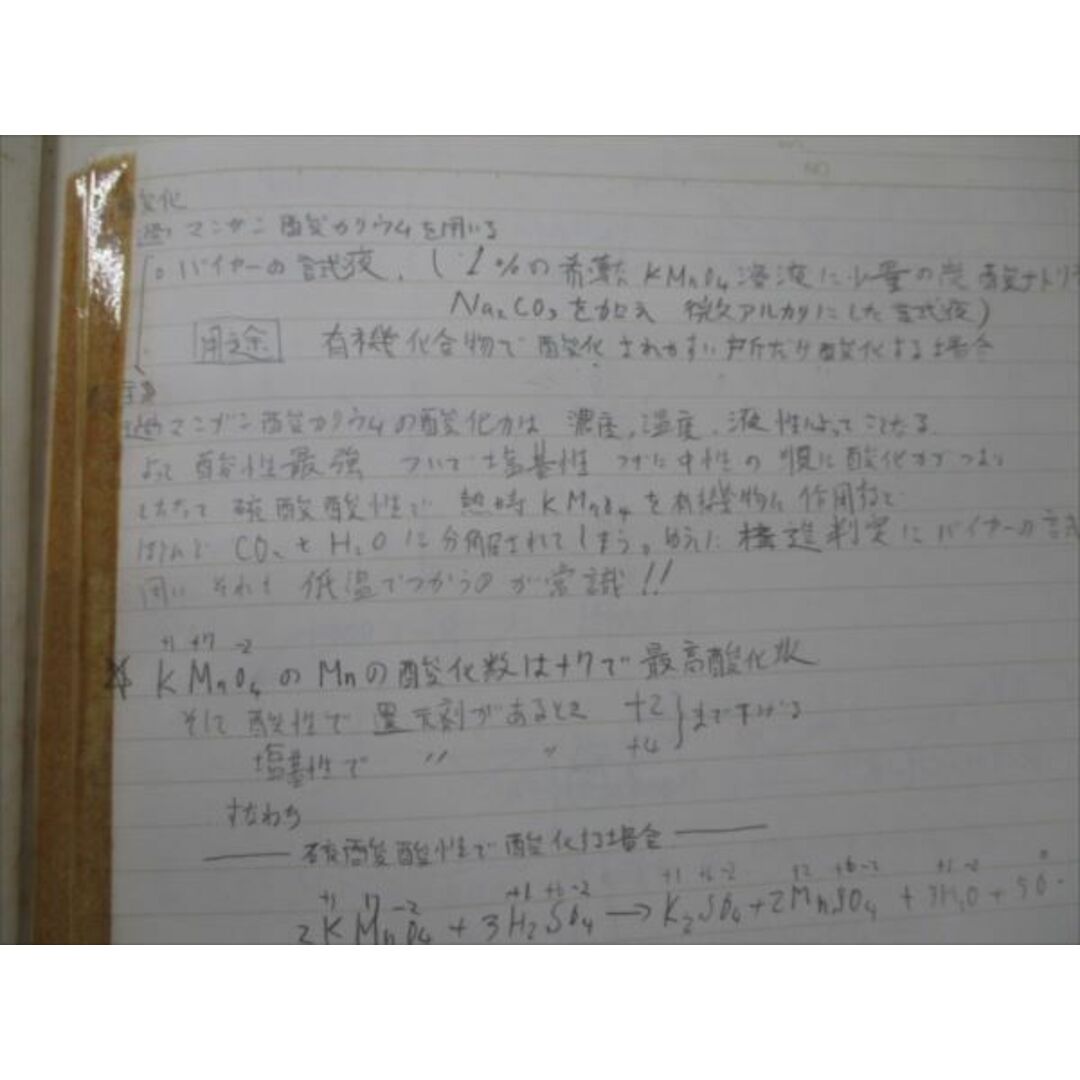 酸化
過マンガン酸カリウムを用いる
○バイヤーの試液.(1%の希薄KMnO4溶液に少量の炭酸ナトリ
Na2CO3を加え 微アルカリにした試液)
用途 有機化合物で酸化されやすい所だけ酸化する場合
過マンガン酸カリウムの酸化力は 濃度,温度.液性によってことなる.
よって酸性最強 ついで塩基性 つぎに中性の順に酸化力がつよい
したがって硫酸酸性で 熱時KMnO4を有機物に作用すると
ほとんど CO2とH2Oに分解されてしまう。ゆえに構造判定にバイヤーの試
用い それも 低温でつかうのが常識!!
+1 +7 -2
※ KMnO4のMnの酸化数は+7で最高酸化状
そして酸性で 還元剤があるとき +2}まで下げる
塩基性で 〃 〃 +4
すなわち
―― 硫酸酸性で酸化する場合 ――
+1 7 -2 +1 +6 -2 +1 +6 -2 +2 +6 -2 +1 -2 0
2KMnO4 + 3H2SO4 → K2SO4 + 2MnSO4 + 3H2O + 5O